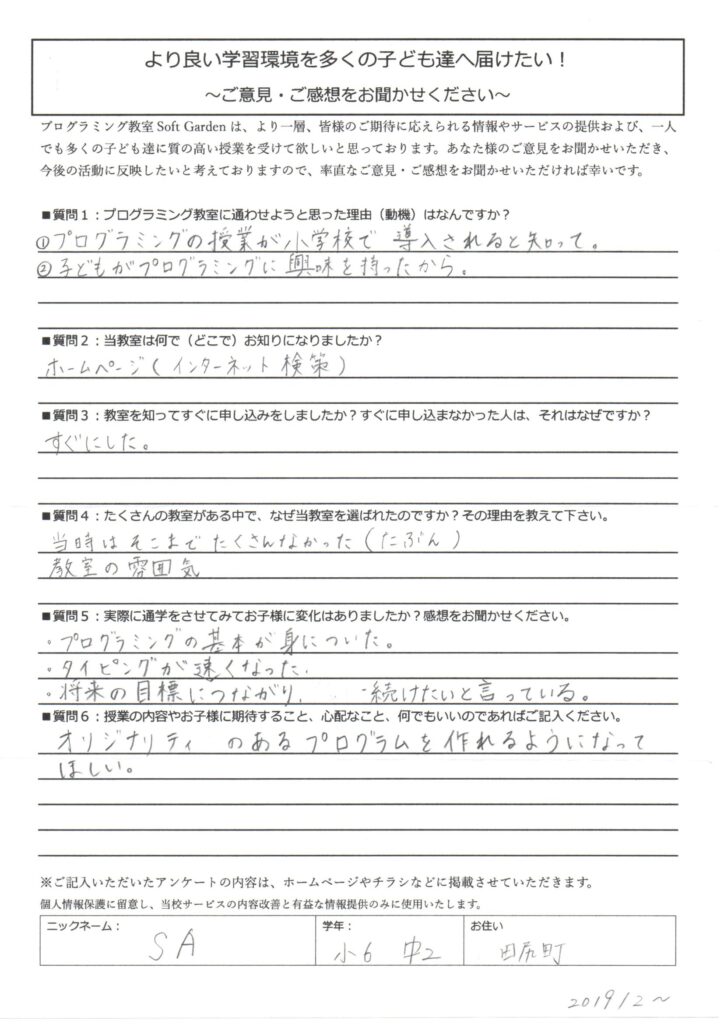 より良い学習環境を多くの子ども達へ届けたい！
～ご意見・ご感想をお聞かせください～
プログラミング教室 Soft Garden は、より一層、皆様のご期待に応えられる情報やサービスの提供および、一人
でも多くの子ども達に質の高い授業を受けて欲しいと思っております。あなた様のご意見をお聞かせいただき、
今後の活動に反映したいと考えておりますので、率直なご意見・ご感想をお聞かせいただければ幸いです。
■質問１：プログラミング教室に通わせようと思った理由（動機）はなんですか？
①プログラミングの授業が小学校で 導入されると知って。
②子どもがプログラミングに興味を持ったから。
■質問２：当教室は何で（どこで）お知りになりましたか？
ホームページ（インターネット検策）
■質問３：教室を知ってすぐに申し込みをしましたか？すぐに申し込まなかった人は、それはなぜですか？
すぐにした。
■質問４：たくさんの教室がある中で、なぜ当教室を選ばれたのですか？その理由を教えて下さい。
当時はそこまでたくさんなかった（たぶん）
教室の雰囲気
■質問５：実際に通学をさせてみてお子様に変化はありましたか？感想をお聞かせください。
・プログラミングの基本が身についた。
・タイピングが速くなった.
・将来の目標につながり、 続けたいと言っている。
■質問６：授業の内容やお子様に期待すること、心配なこと、何でもいいのであればご記入ください。
オリジナリティ のあるプログラムを作れるようになって
ほしい。
※ご記入いただいたアンケートの内容は、ホームページやチラシなどに掲載させていただきます。
個人情報保護に留意し、当校サービスの内容改善と有益な情報提供のみに使用いたします。
ニックネーム： 学年： お住い
SA 小6 中2 田尻町
2019/2～